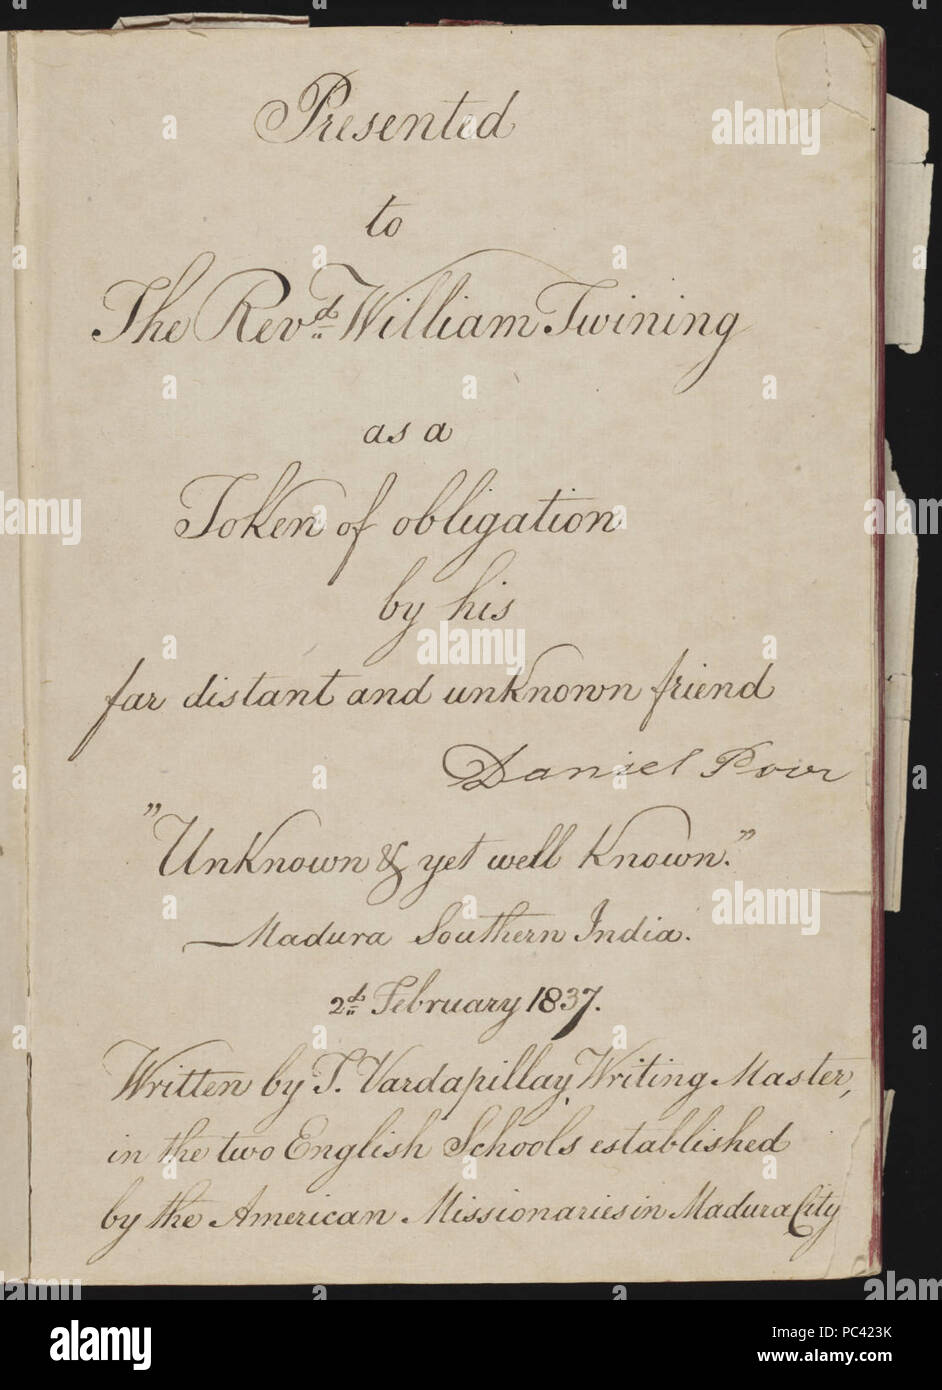 Presented
to
The Revd. William Twining
as a
Token of obligation
by his
far distant and unknown friend
Daniel Poor
"Unknown & yet well known."
Madura Southern India.
2d. February 1837.
Written by T. Vardapillay, Writing Master,
in the two English Schools established
by the American Missionaries in Madura City
alamy
Image ID: PC423K
www.alamy.com